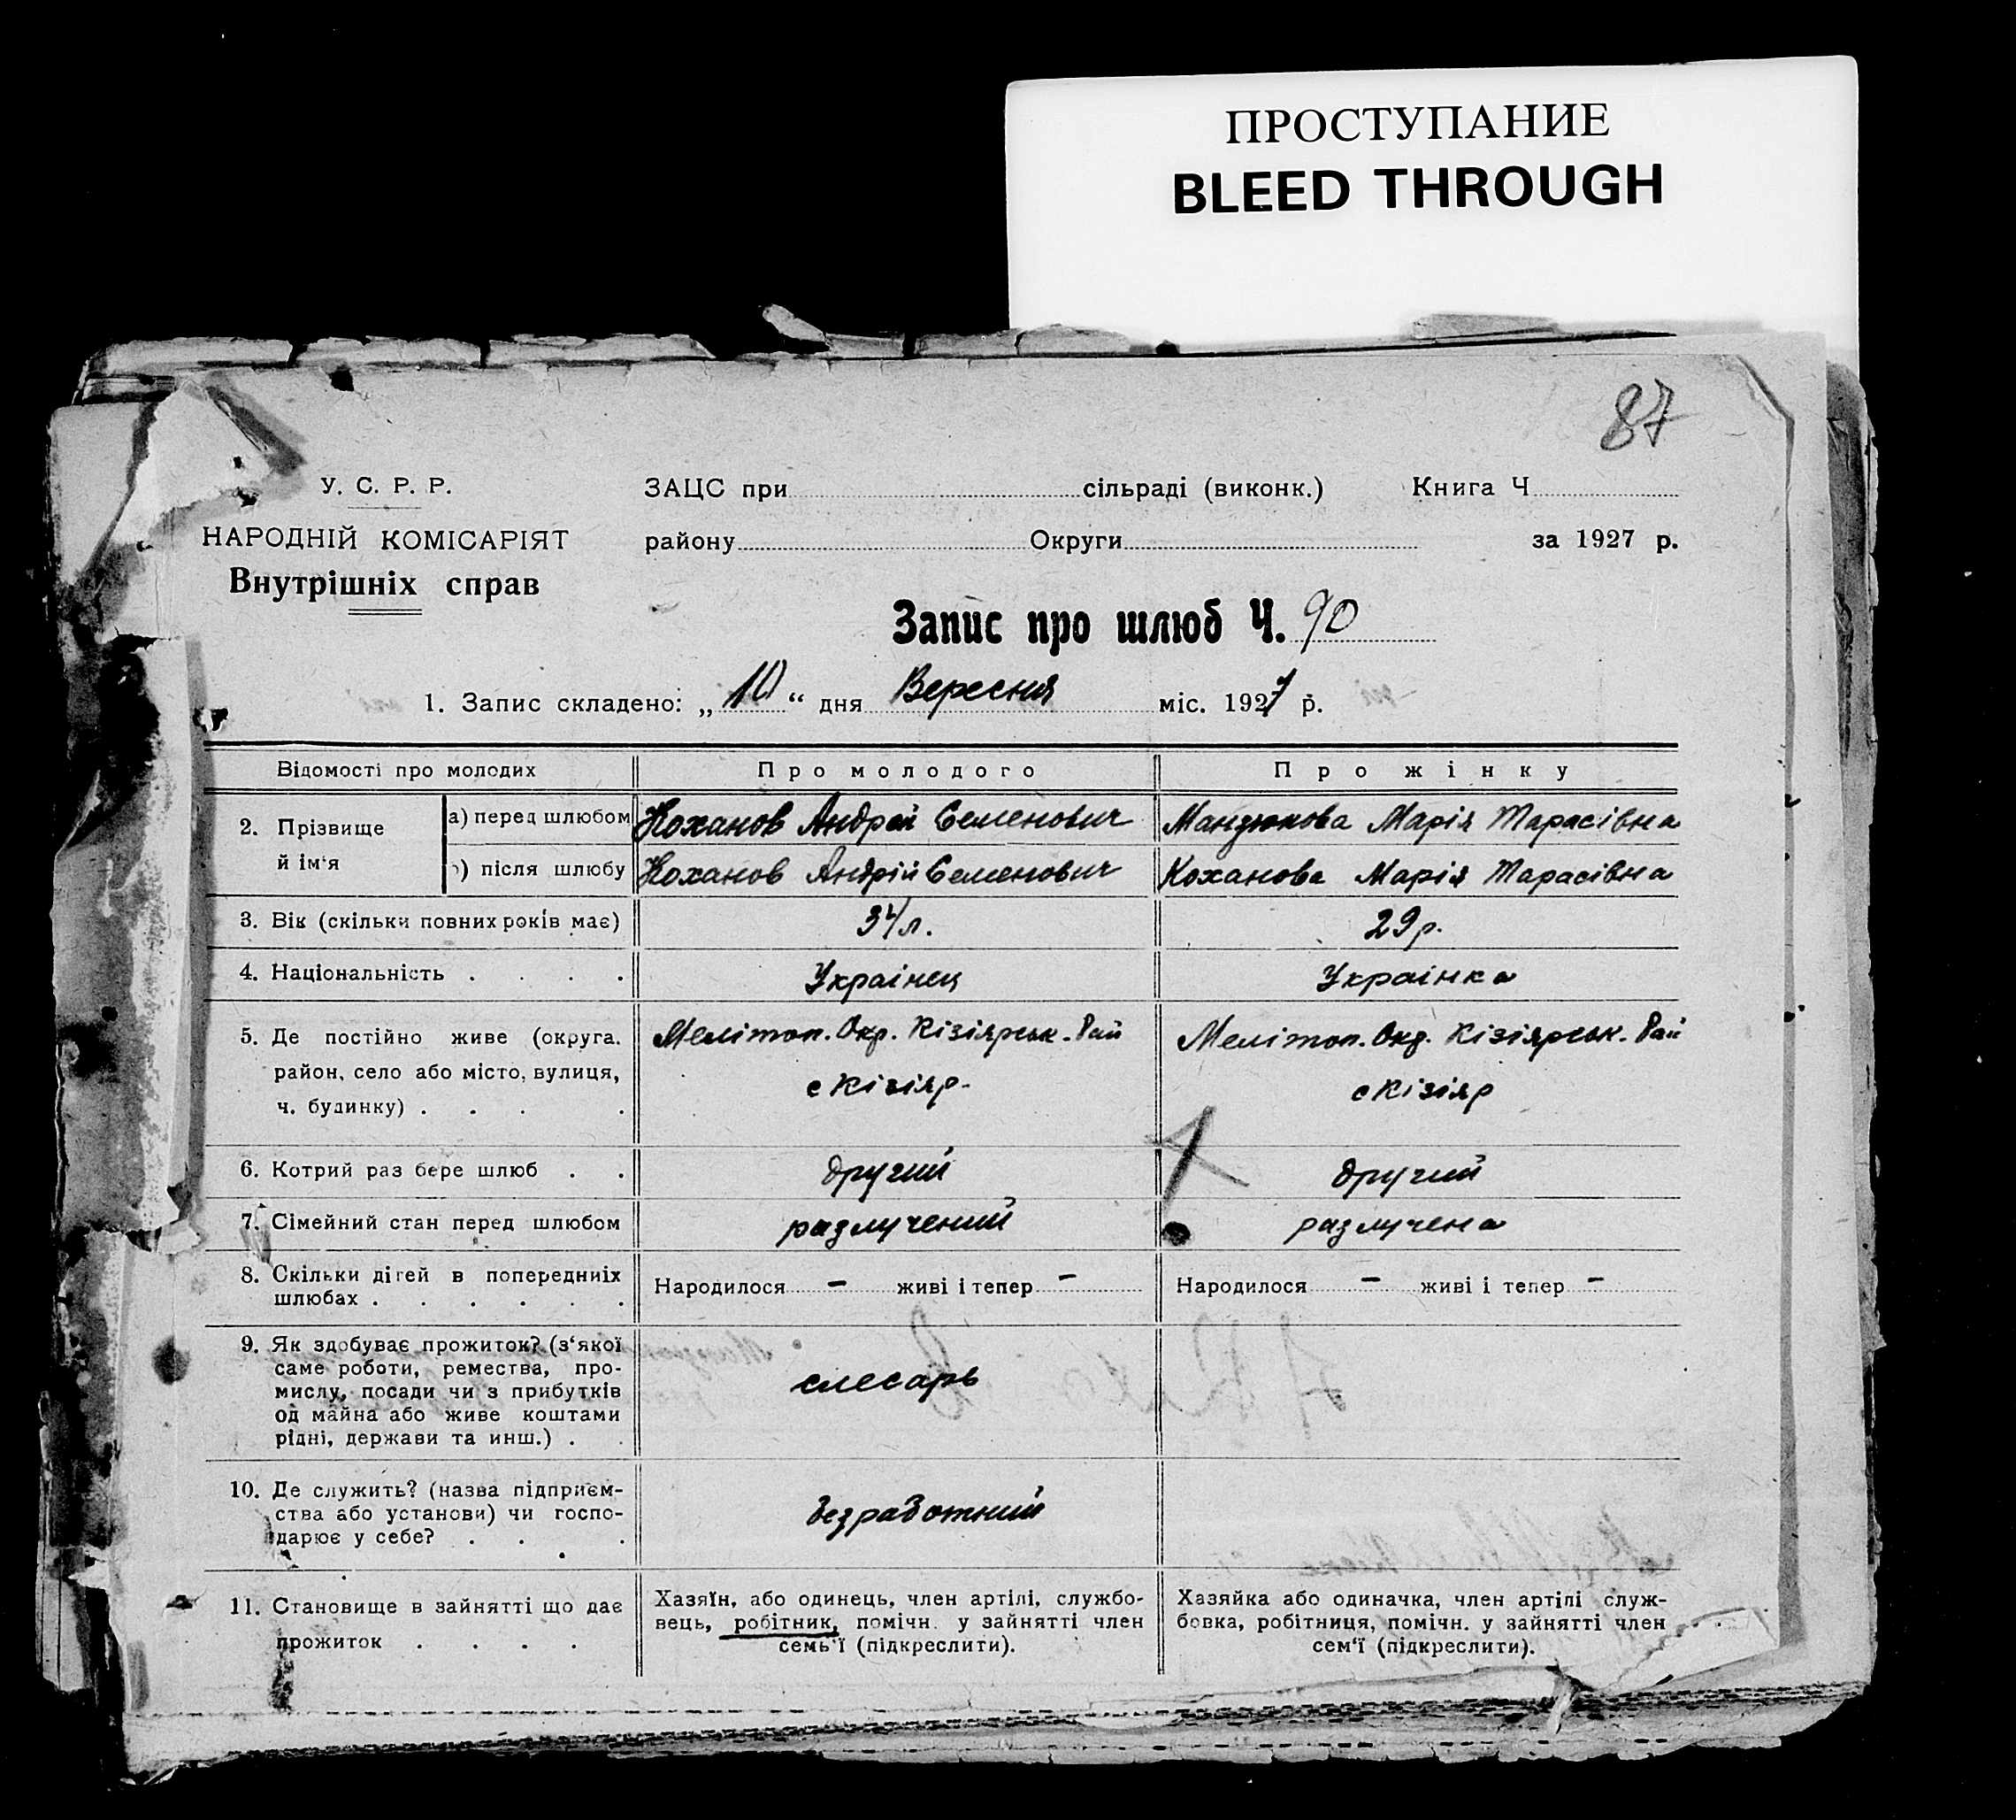 ПРОСТУПАНИЕ
BLEED THROUGH
87
У. С. Р. Р.
НАРОДНІЙ КОМІСАРІЯТ
Внутрішніх справ
ЗАЦС при сільраді (виконк.) Книга Ч
району Округи за 1927 р.
Запис про шлюб Ч. 90
1. Запис складено: „ 10 “ дня Вересня міс. 1927 р.
Відомості про молодих Про молодого Про жінку
2. Прізвище й ім‘я
а) перед шлюбом Коханов Андрей Семенович Мандюкова Марія Тарасівна
) після шлюбу Коханов Андрій Семенович Коханова Марія Тарасівна
3. Вік (скільки повних років має) 34 л. 29 р.
4. Національність . . . . Украінец Украінка
5. Де постійно живе (округа. Мелітоп. Окр. Кізіярськ. Рай Мелітоп. Окр. Кізіярськ. Рай
район, село або місто, вулиця, с Кізіяр. с Кізіяр
ч. будинку) . . . .
6. Котрий раз бере шлюб . . другий другий
7. Сімейний стан перед шлюбом разлучений разлучена
8. Скільки дітей в попередниіх
шлюбах . . . . . . Народилося - живі і тепер - Народилося - живі і тепер -
9. Як здобуває прожиток? (з‘якої
саме роботи, ремества, про-
мислу, посади чи з прибутків слесарь
од майна або живе коштами
рідні, держави та инш.) . .
10. Де служить? (назва підприєм-
ства або установи) чи госпо- безработний
дарює у себе? . . .
11. Становище в зайнятті що дає
прожиток . . . .
Хазяїн, або одинець, член артілі, службо-
вець, робітник, помічн. у зайнятті член
семь‘ї (підкреслити).
Хазяйка або одиначка, член артілі служ-
бовка, робітниця, помічн. у зайнятті член
сем‘ї (підкреслити).